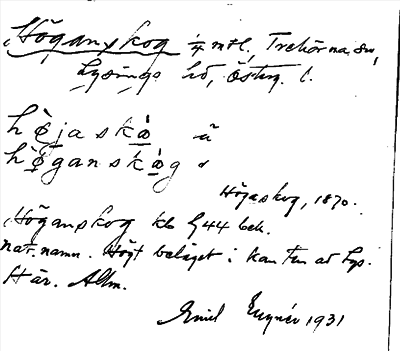 Höganskog 1/4 mtl, Trehörna sn,
Lysings hd, Östg. l.
höjaskå ä
höganskåg s
Höjaskog, 1870.
Höganskog kb 1/44 bek.
nat. namn. Högt beläget i kanten at Lys.
Här. Allm.
Emil 1931